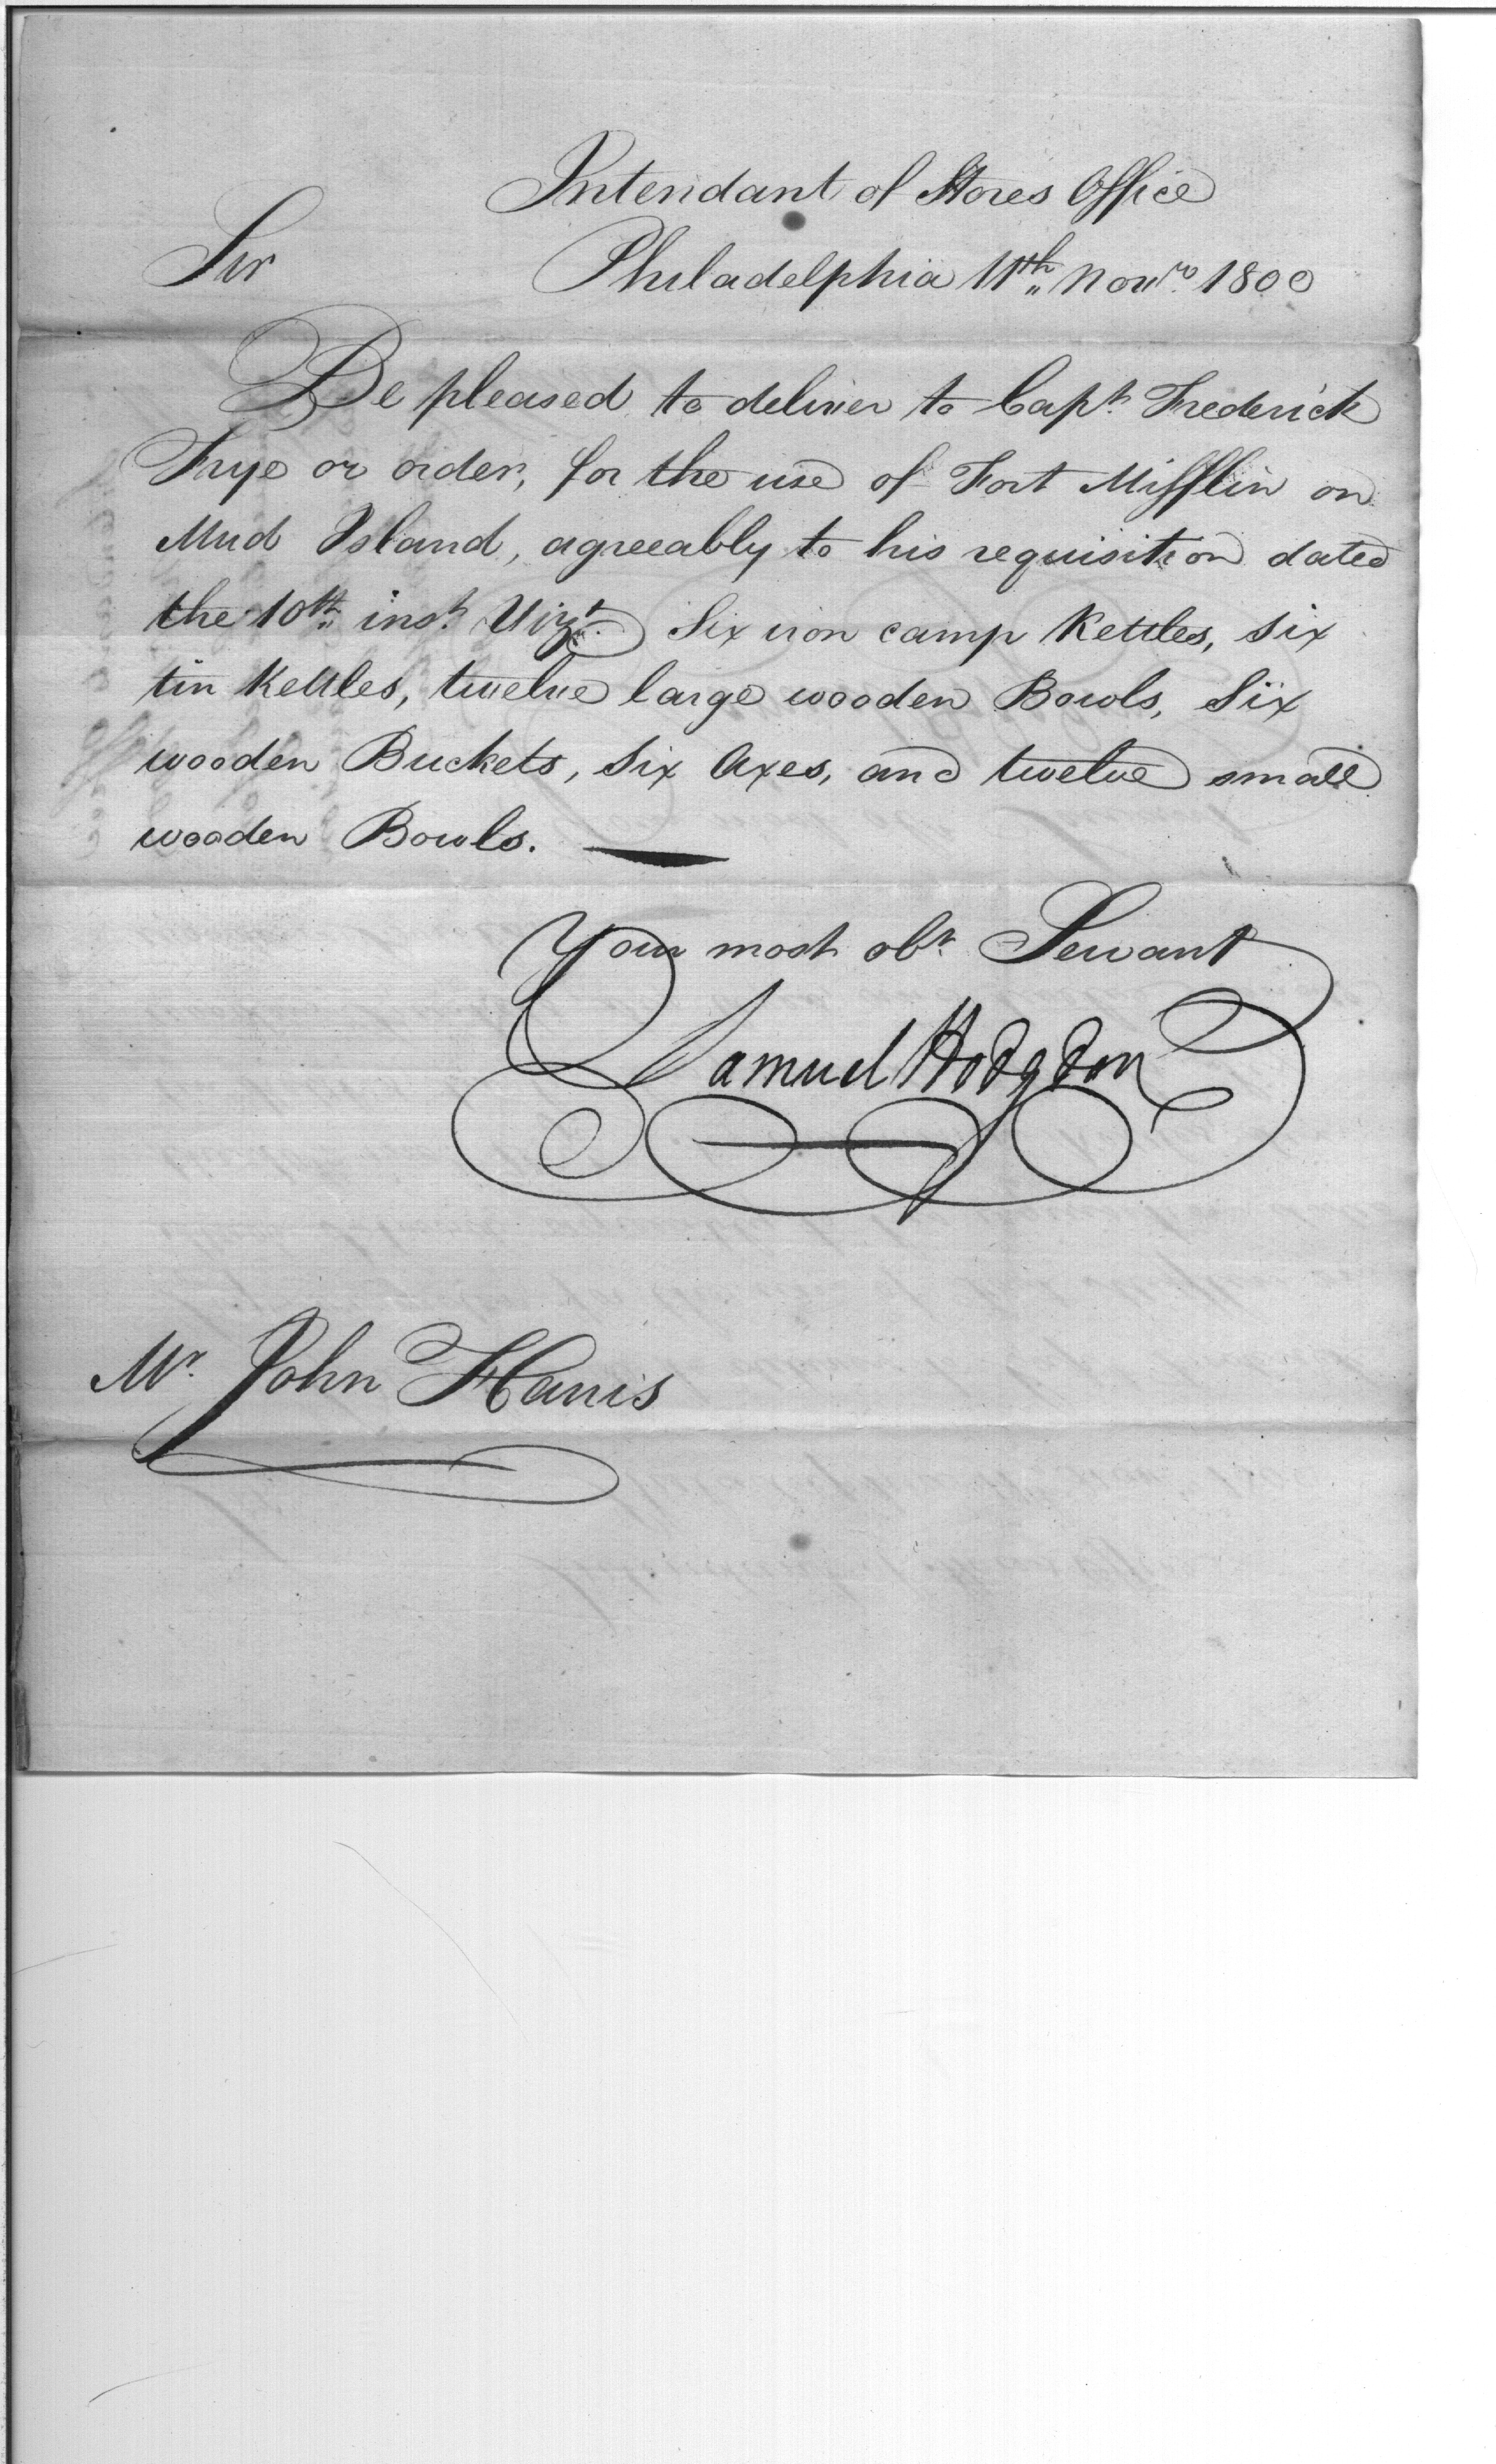 Intendant of Stores Office
Sir Philadelphia 11th Novr 1800
Be pleased to deliver to Capt. Frederick
Frye or order, for the use of Fort Mifflin on
Mud Island, agreeably to his requisition dated
the 10th inst. Vizt. Six iron camp Kettles, six
tin Kettles, twelve large wooden Bowls, Six
wooden Buckets, Six Axes, and twelve small
wooden Bowls.
Your most obt. Servant
Samuel Hodgdon
Mr. John Harris